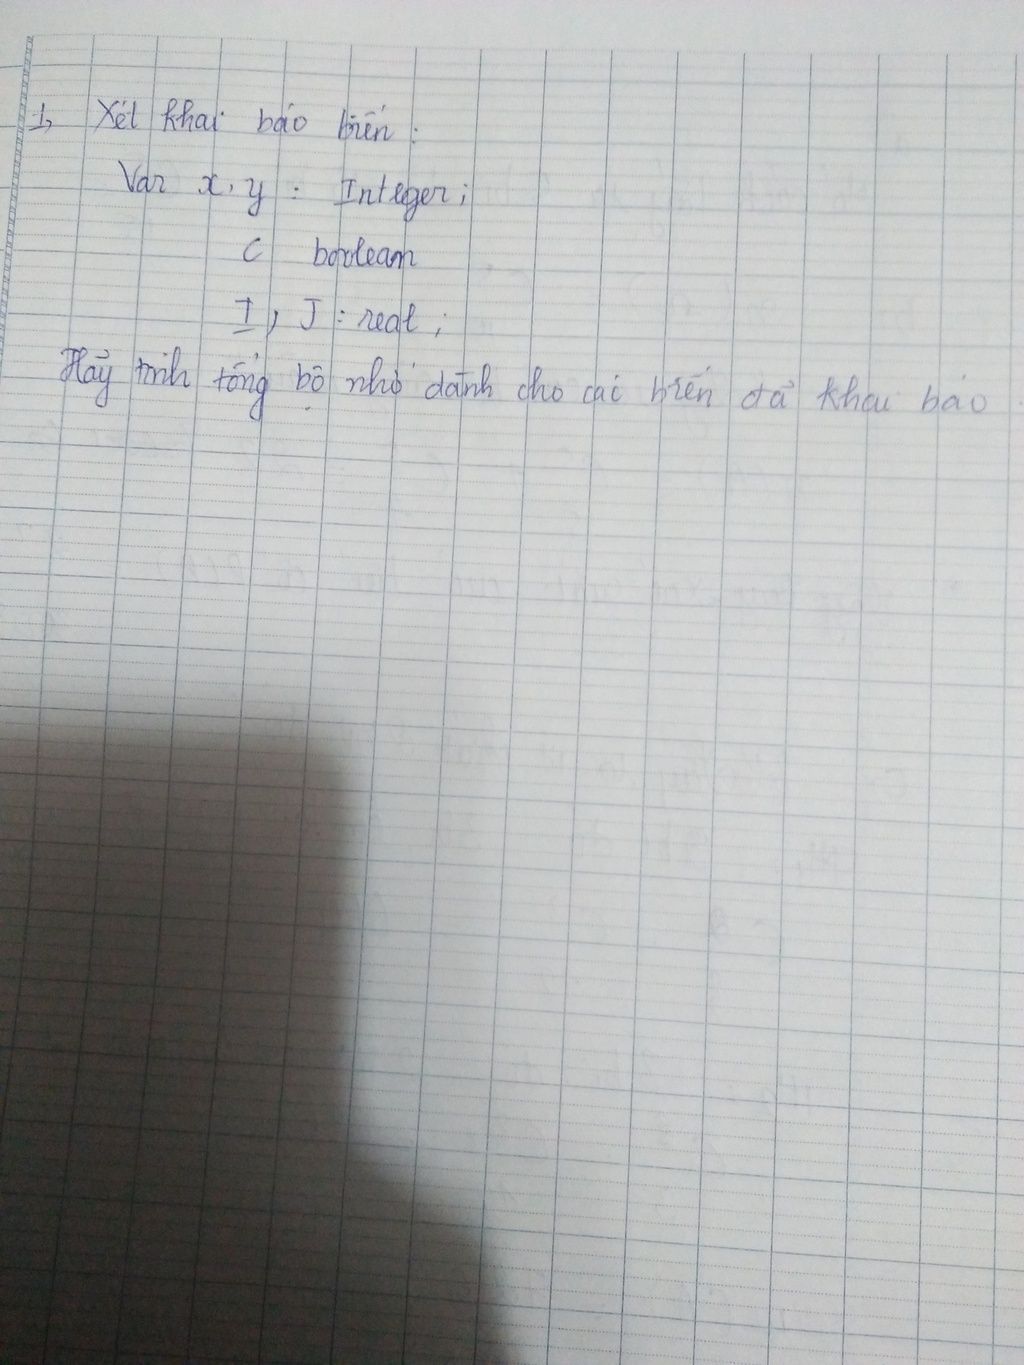 1, Xét khai báo biến :
Var x, y : Integer;
C boolean
I, J : real ;
Hãy tính tổng bộ nhớ dành cho các biến đã khai báo.